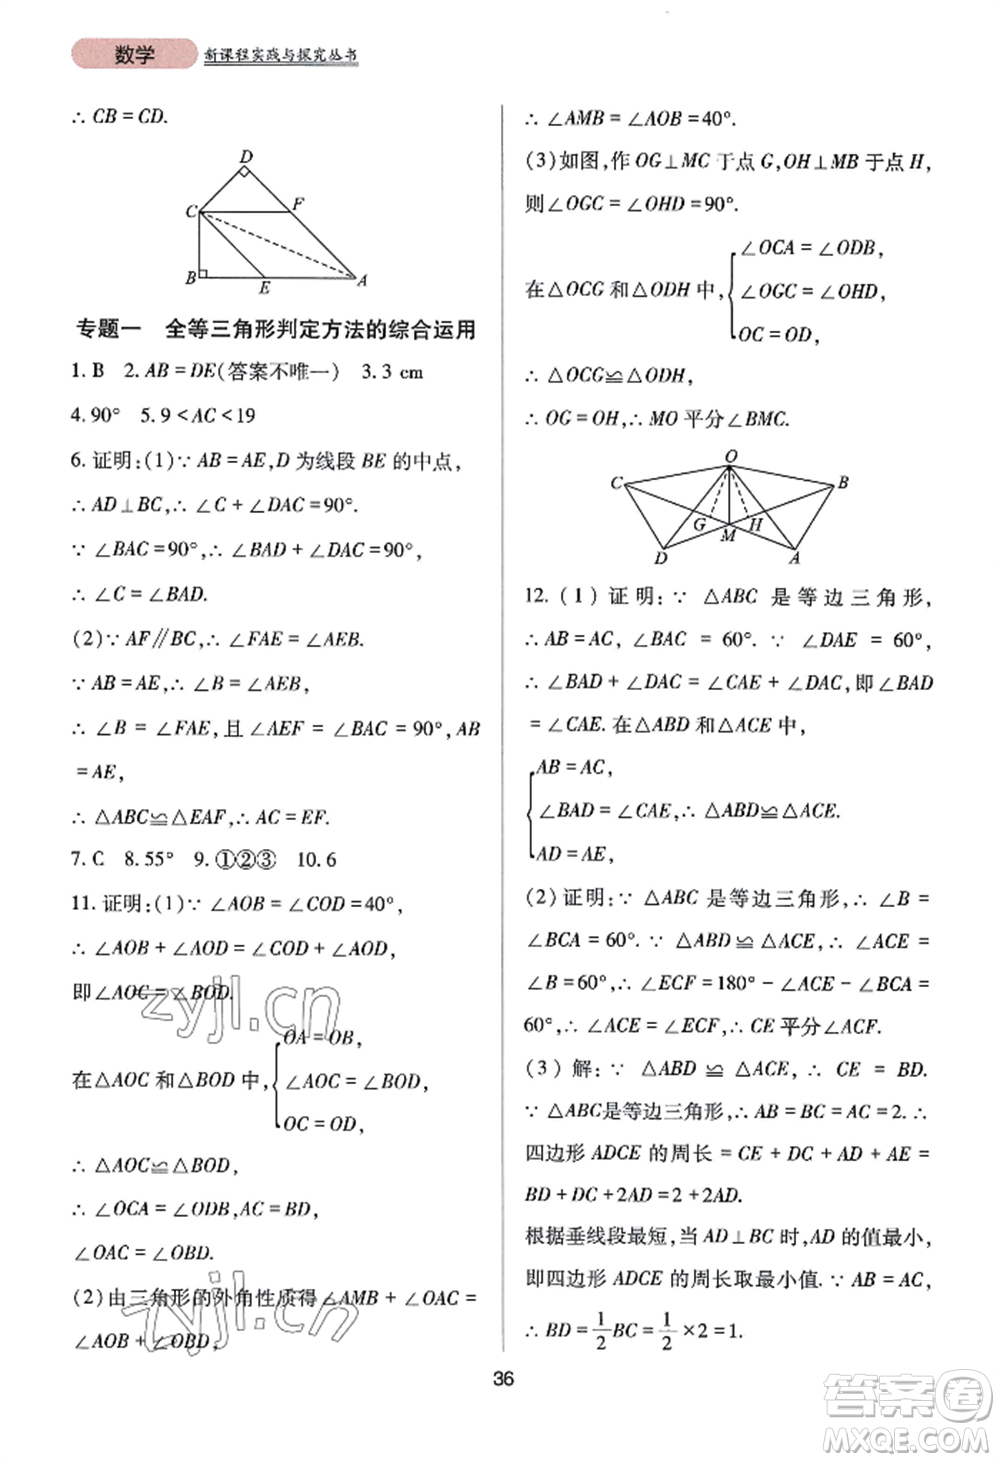 数学 新课程实践与探究丛书
∴ CB = CD.
D
C F
B E A
专题一 全等三角形判定方法的综合运用
1. B 2. AB = DE(答案不唯一) 3. 3 cm
4. 90° 5. 9 < AC < 19
6. 证明:(1)∵ AB = AE, D 为线段 BE 的中点,
∴ AD⊥BC, ∴ ∠C + ∠DAC = 90°.
∵ ∠BAC = 90°, ∴ ∠BAD + ∠DAC = 90°,
∴ ∠C = ∠BAD.
(2)∵ AF∥BC, ∴ ∠FAE = ∠AEB.
∵ AB = AE, ∴ ∠B = ∠AEB,
∴ ∠B = ∠FAE, 且 ∠AEF = ∠BAC = 90°, AB
= AE,
∴ △ABC≌△EAF, ∴ AC = EF.
7. C 8. 55° 9. ①②③ 10. 6
11. 证明:(1)∵ ∠AOB = ∠COD = 40°,
∴ ∠AOB + ∠AOD = ∠COD + ∠AOD,
即∠AOC = ∠BOD.
OA = OB,
在△AOC 和△BOD 中, ∠AOC = ∠BOD,
OC = OD,
∴ △AOC≌△BOD,
∴ ∠OCA = ∠ODB, AC = BD,
∠OAC = ∠OBD.
(2)由三角形的外角性质得∠AMB + ∠OAC =
∠AOB + ∠OBD,
∴ ∠AMB = ∠AOB = 40°.
(3)如图, 作 OG⊥MC 于点 G, OH⊥MB 于点 H,
则∠OGC = ∠OHD = 90°.
∠OCA = ∠ODB,
在△OCG 和△ODH 中, ∠OGC = ∠OHD,
OC = OD,
∴ △OCG≌△ODH,
∴ OG = OH, ∴ MO 平分∠BMC.
O
C B
G H
M
D A
12. (1) 证明: ∵ △ABC 是等边三角形,
∴ AB = AC, ∠BAC = 60°. ∵ ∠DAE = 60°,
∴ ∠BAD + ∠DAC = ∠CAE + ∠DAC, 即∠BAD
= ∠CAE. 在△ABD 和△ACE 中,
AB = AC,
∠BAD = ∠CAE, ∴ △ABD≌△ACE.
AD = AE,
(2) 证明: ∵ △ABC 是等边三角形, ∴ ∠B =
∠BCA = 60°. ∵ △ABD ≌ △ACE, ∴ ∠ACE =
∠B = 60°, ∴ ∠ECF = 180° - ∠ACE - ∠BCA =
60°, ∴ ∠ACE = ∠ECF, ∴ CE 平分∠ACF.
(3) 解: ∵ △ABD ≌ △ACE, ∴ CE = BD.
∵ △ABC是等边三角形, ∴ AB = BC = AC = 2. ∴
四边形 ADCE 的周长 = CE + DC + AD + AE =
BD + DC + 2AD = 2 + 2AD.
根据垂线段最短, 当 AD⊥BC 时, AD 的值最小,
即四边形 ADCE 的周长取最小值. ∵ AB = AC,
∴ BD = 1/2 BC = 1/2 × 2 = 1.
36
zyjl.cn
zyjl.cn
答案圈
MXQE.COM